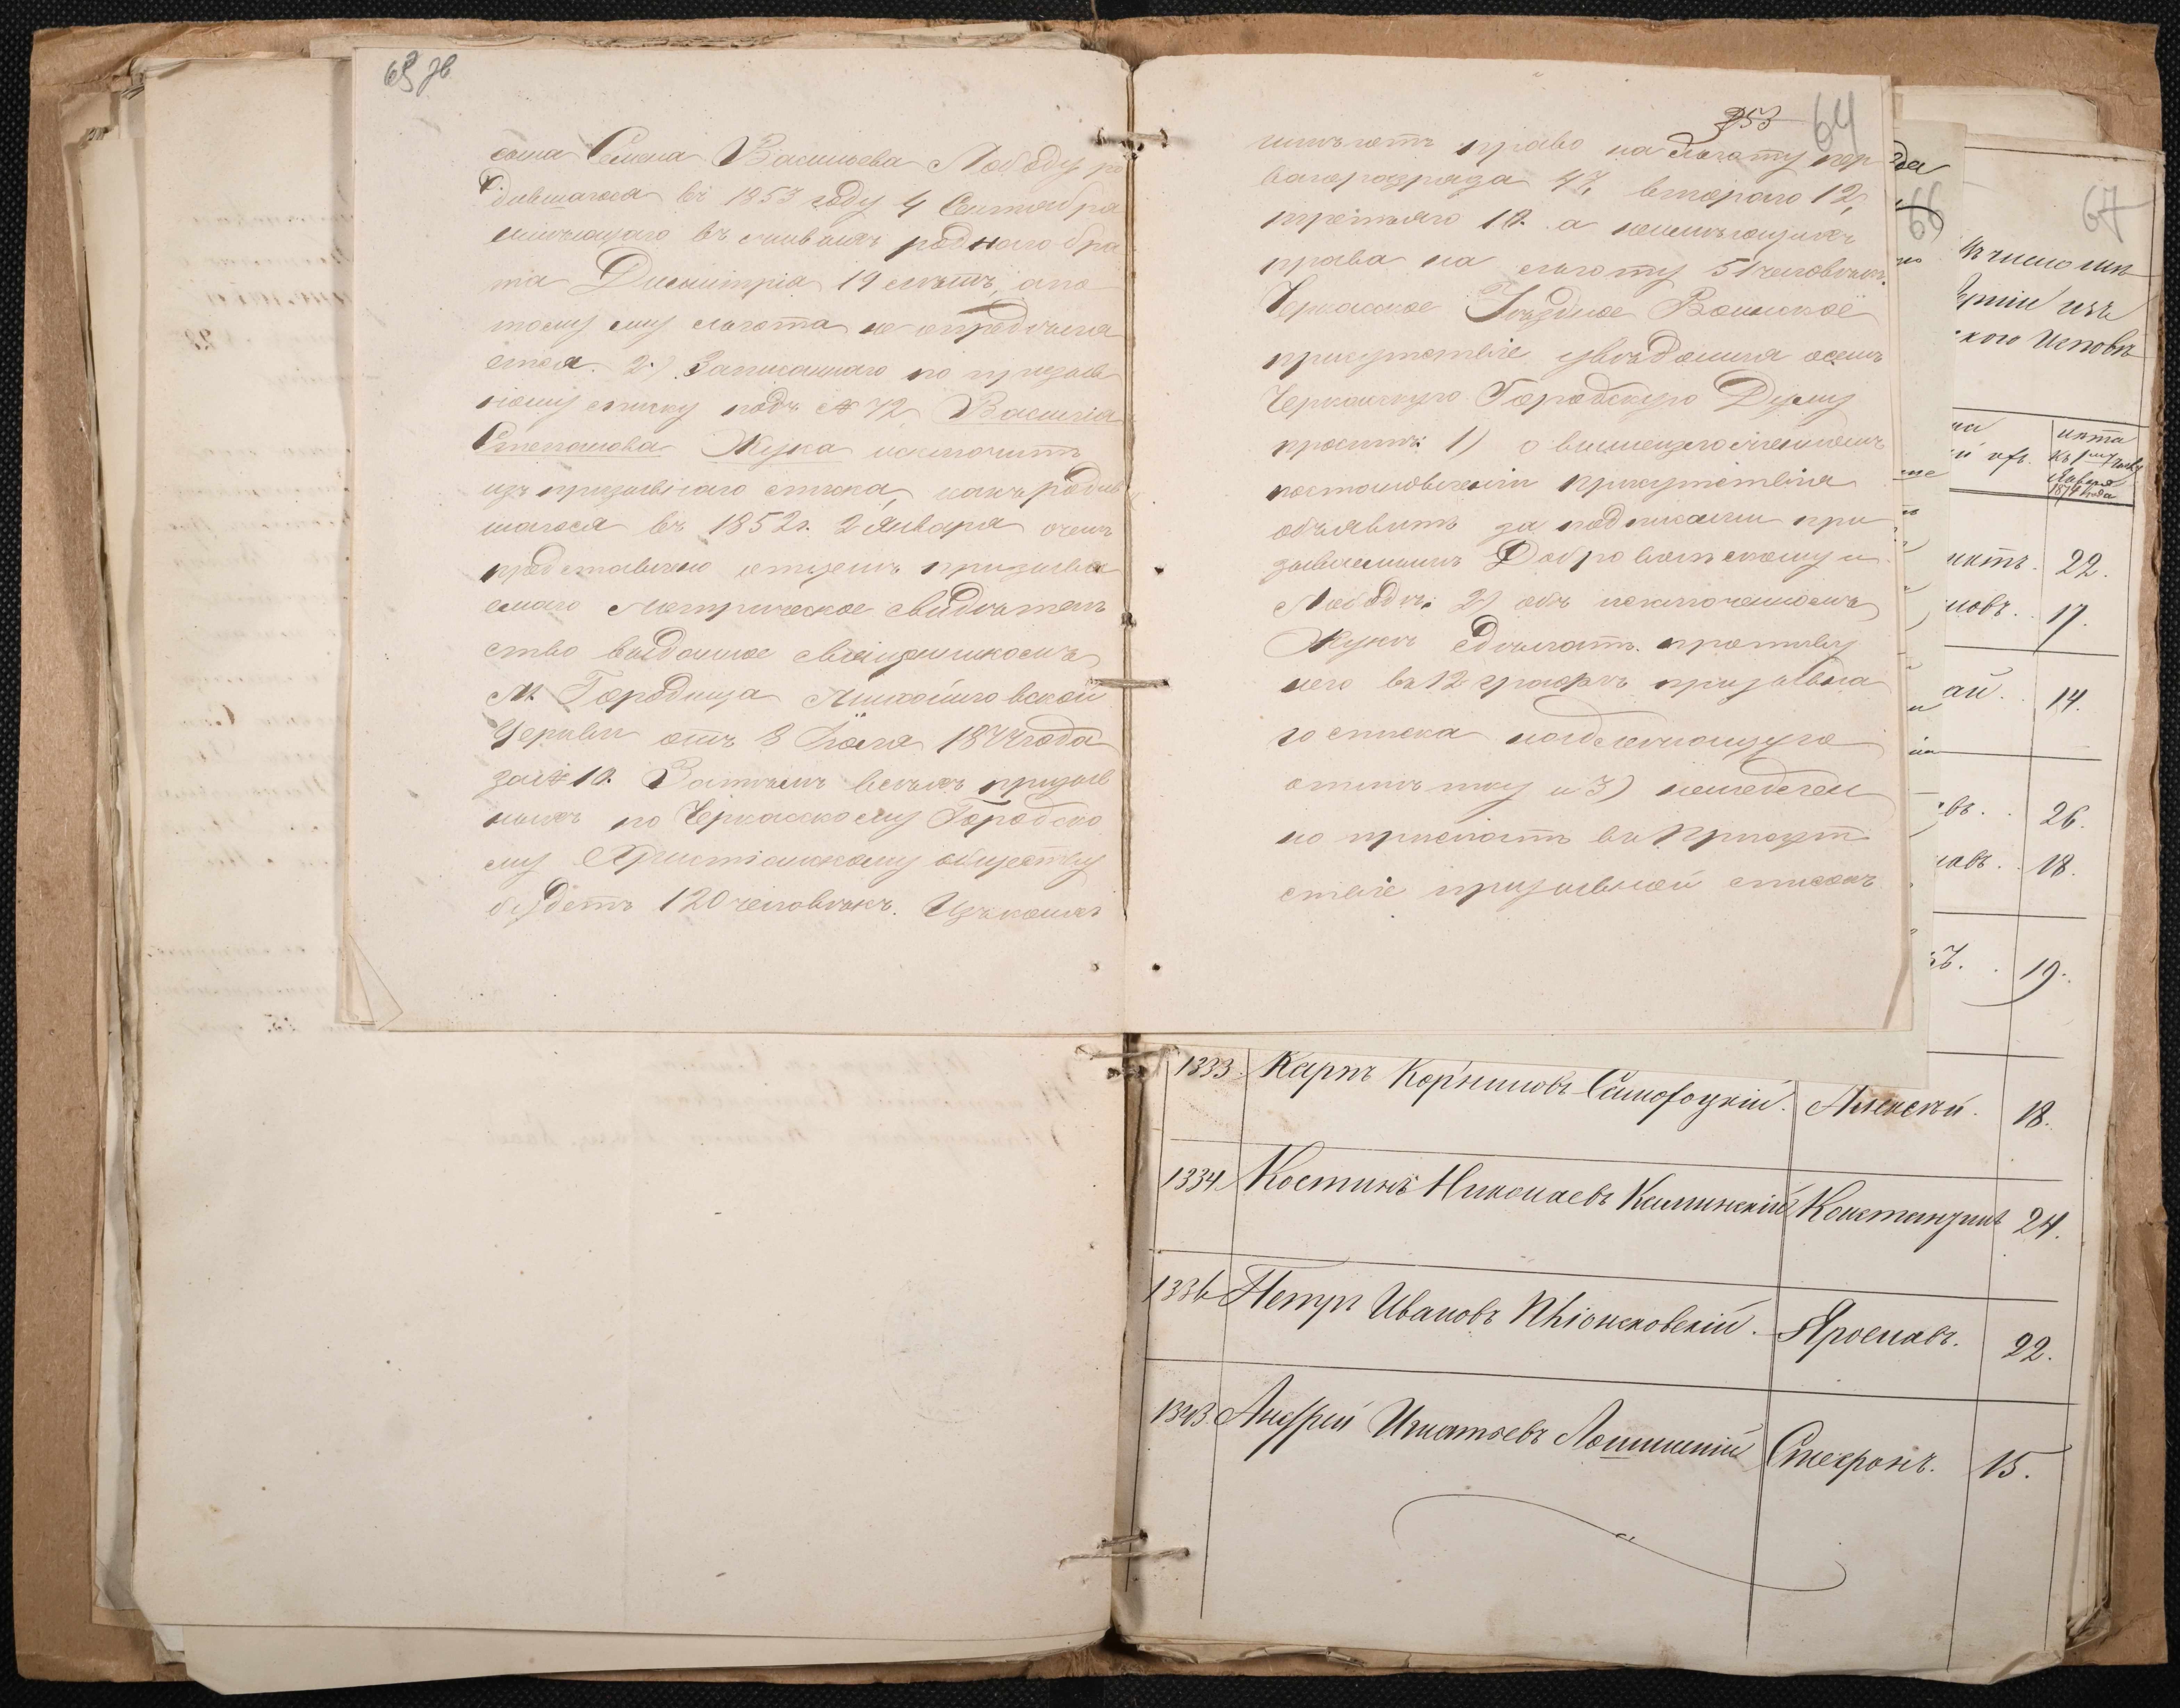 сына Семена Васильева Лободу ро
дившагося въ 1853 году 4 Сентября
имѣющаго въ живыхъ роднаго бра
та Димитрія 19 лѣтъ, апо
тому ему льгота не опредѣляе
ется. 2.) Записаннаго по призыв
ному списку подъ № 72, Василія
Степанова Жука исключить
изъ призывнаго списка, какъ родив
шагося въ 1852 г. 2 Января очемъ
представлено отцемъ призыва
емаго Метрическое свидѣтель
ство выданное священникомъ
М. Городища Михайловской
Церкви отъ 8 Іюля 1844 года
за № 10. Затѣмъ всѣхъ призыв
ныхъ по Черкасскому Городско
му Христіанскому обществу
будетъ 120 человѣкъ. Изъ коихъ
353 64
имѣютъ право на льготу пер
ваго разряда 47, втораго 12,
третьяго 10. а неимѣющихъ
права на льготу 51 человѣкъ.
Черкасское Уѣздное Воинское
присутствіе увѣдомляя осемъ
Черкасскую Городскую Думу
проситъ: 1) о вышеизъясненномъ
постановленіи присутствія
объявить за подписками при
зываемымъ Добровольскому и
Лободѣ; 2) объ исключенномъ
Жукѣ сдѣлать противу
него въ 12 графѣ призывна
го списка надлежащую
отмѣтку и 3) немедлен
но прислать въ Присут
ствіе призывной списокъ
66
67
въ число
изъ
кого
лѣта
къ 1му
Января
1874 года
22.
17.
ай. 14.
26.
18.
19.
1333. Карпъ Корниловъ Алексѣй. 18.
1334 Костинъ Николаевъ Константинъ 24.
133 Петръ Ивановъ Ярославъ. 22.
1343 Андрей Игнатьевъ Стефанъ. 15.